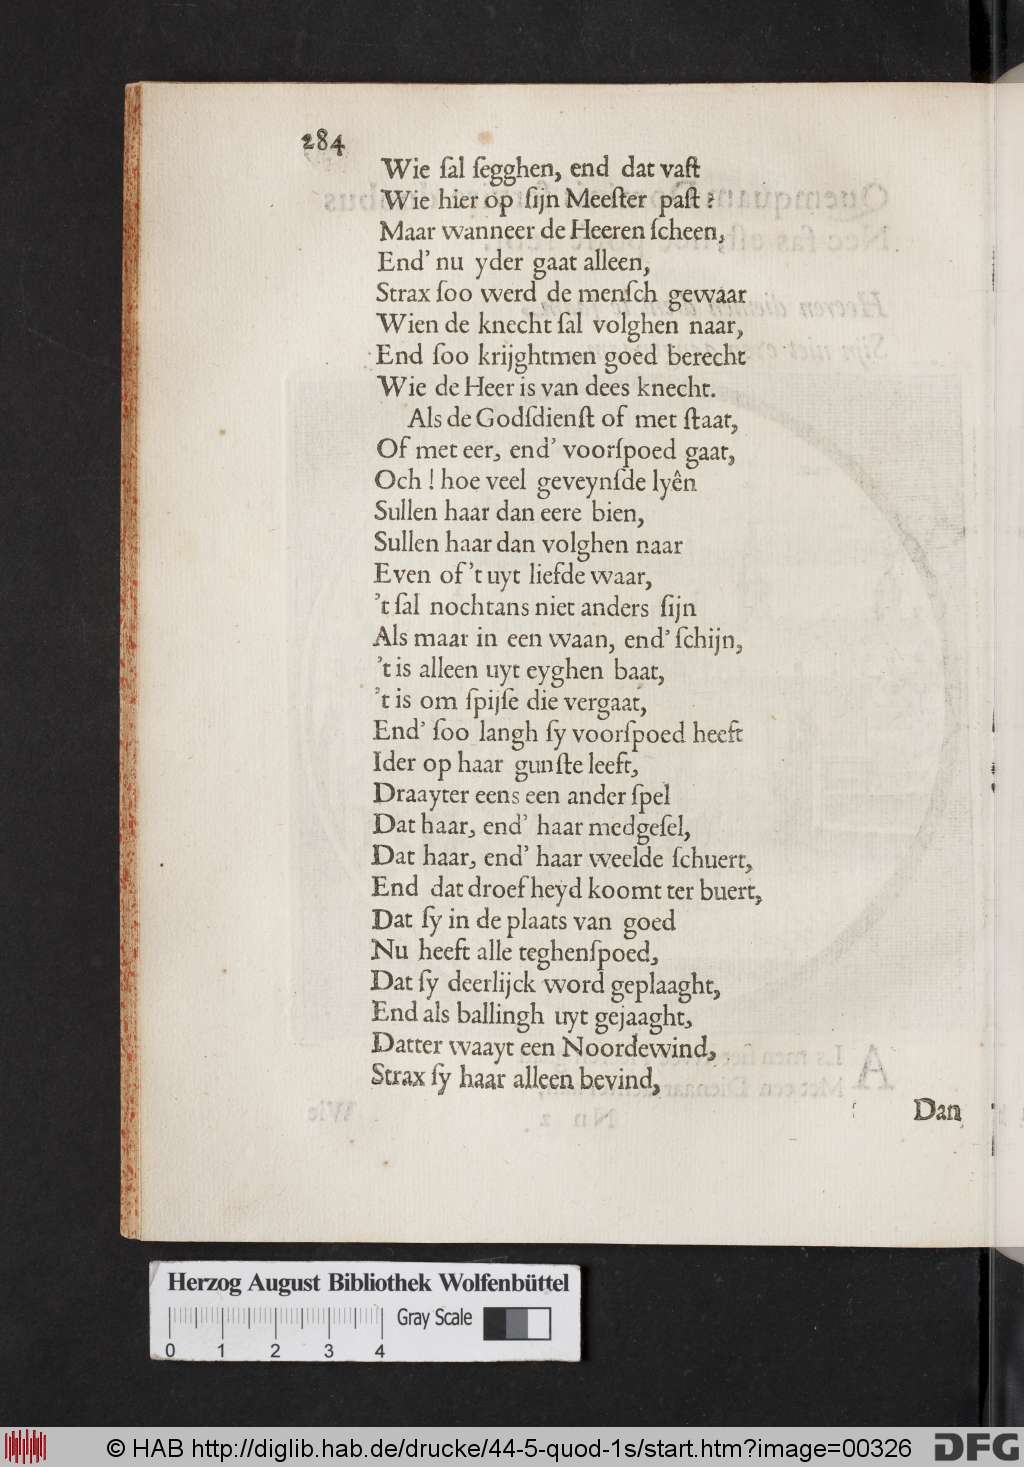 284
Wie ſal ſegghen, end dat vaſt
Wie hier op ſijn Meeſter paſt ?
Maar wanneer de Heeren ſcheen,
End’ nu yder gaat alleen,
Strax ſoo werd de menſch gewaar
Wien de knecht ſal volghen naar,
End ſoo krijghtmen goed berecht
Wie de Heer is van dees knecht.
Als de Godſdienſt of met ſtaat,
Of met eer, end’ voorſpoed gaat,
Och ! hoe veel geveynſde lyên
Sullen haar dan eere bien,
Sullen haar dan volghen naar
Even of ’t uyt liefde waar,
’t ſal nochtans niet anders ſijn
Als maar in een waan, end’ ſchijn,
’t is alleen uyt eyghen baat,
’t is om ſpijſe die vergaat,
End’ ſoo langh ſy voorſpoed heeft
Ider op haar gunſte leeft,
Draayter eens een ander ſpel
Dat haar, end’ haar medgeſel,
Dat haar, end’ haar weelde ſchuert,
End dat droefheyd koomt ter buert,
Dat ſy in de plaats van goed
Nu heeft alle teghenſpoed,
Dat ſy deerlijck word geplaaght,
End als ballingh uyt gejaaght,
Datter waayt een Noordewind,
Strax ſy haar alleen bevind,
Dan
Herzog August Bibliothek Wolfenbüttel
Gray Scale
0 1 2 3 4
© HAB http://diglib.hab.de/drucke/44-5-quod-1s/start.htm?image=00326
DFG